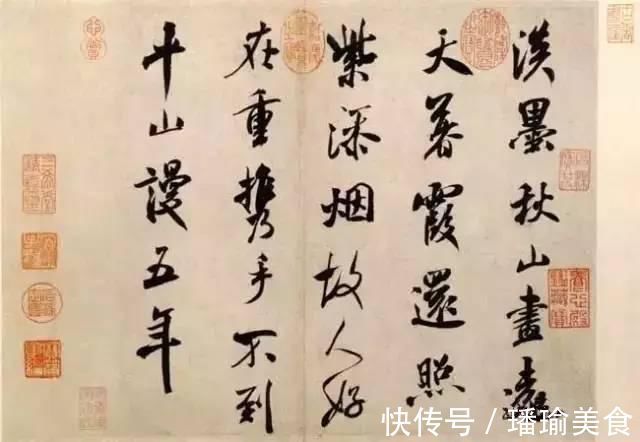 淡墨秋山畫遠
天暮霞還照
紫添烟故人好
在重攜手不到
平山謾五年
快传号／璠瑜美食